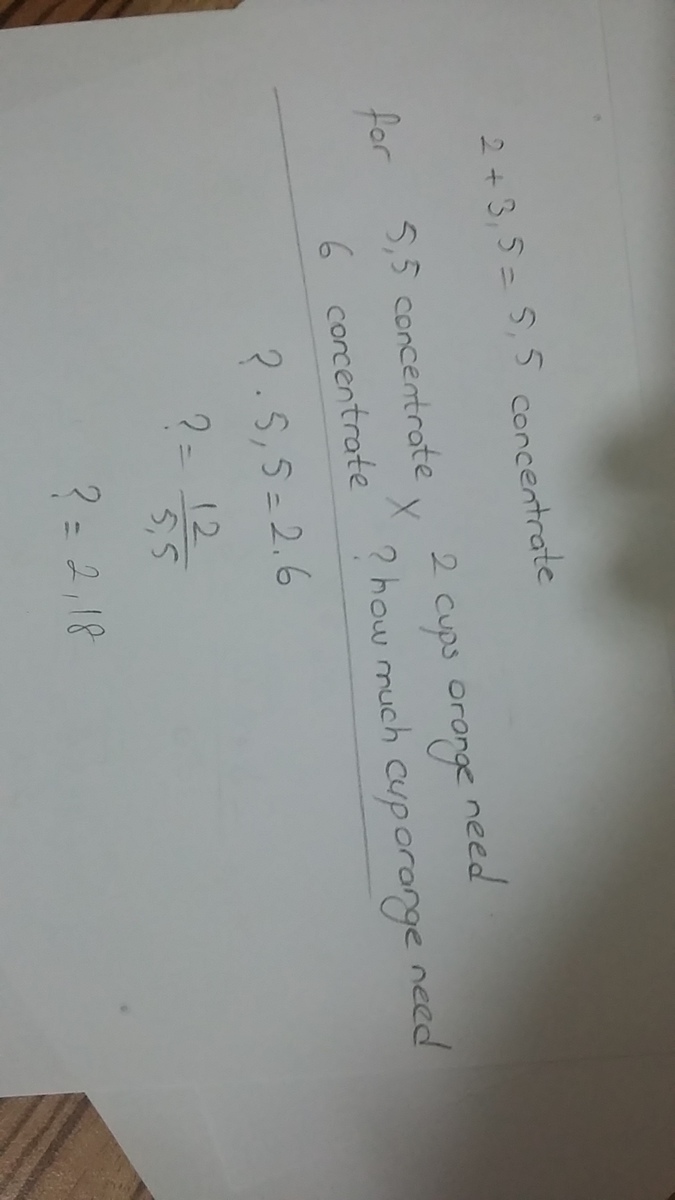 2 + 3,5 = 5,5 concentrate
for 5,5 concentrate X 2 cups orange need
6 concentrate ? how much cup orange need
? . 5,5 = 2.6
? = 12/5,5
? = 2,18